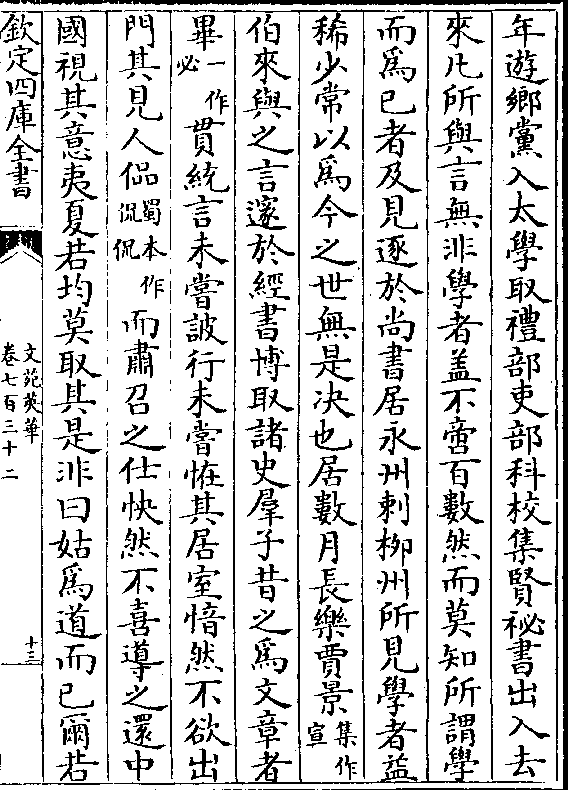 年遊鄉黨入太學取禮部吏部科校集賢祕書出入去
來凡所與言無非學者盖不啻百數然而莫知所謂學
而為已者及見逐於尚書居永州刺栁州所見學者益
稀少常以為今之世無是决也居數月長樂賈景集作宣
伯來與之言邃於經書博取諸史羣子昔之為文章者
畢一作必貫統言未嘗詖行未嘗恠其居室愔然不欲出
門其見人侣蜀本作侃侃而肅召之仕怏然不喜導之還中
國視其意夷夏若均莫取其是非曰姑為道而已爾若
欽定四庫全書
文苑英華
卷七百三十二
十三